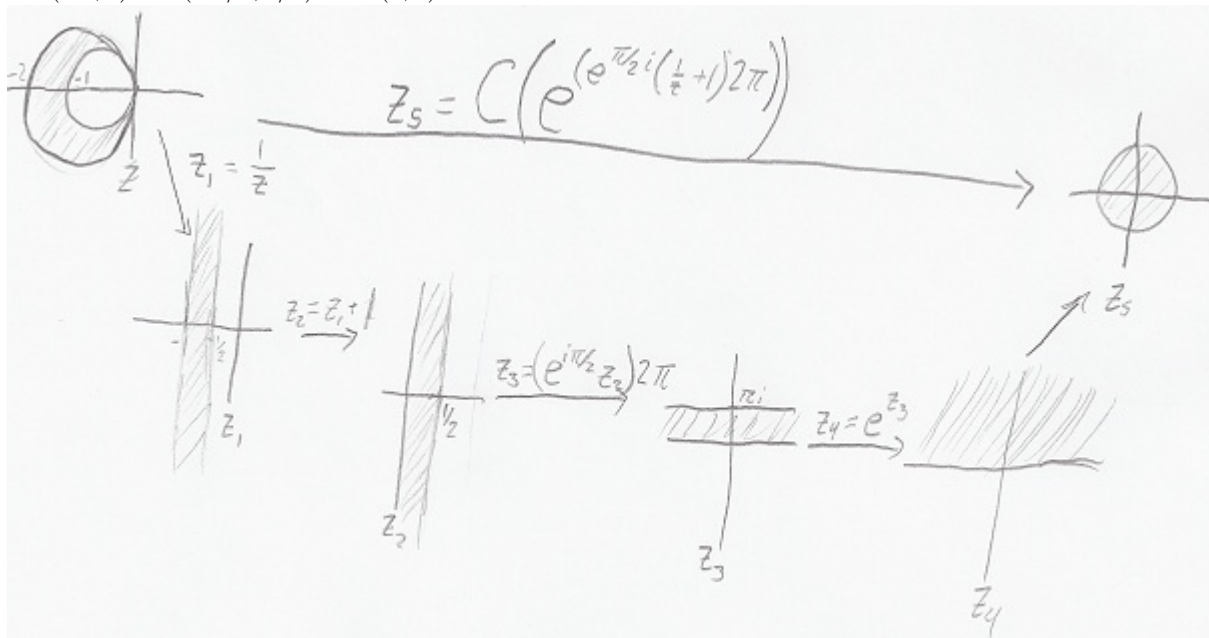 -2
-1
z
z₅ = C(e^(e^{π/2 i}(1/z + 1)2π))
z₁ = 1/z
-
-1/2
z₁
z₂ = z₁ + 1
1/2
z₂
z₃ = (e^{iπ/2} z₂)2π
πi
z₃
z₄ = e^{z₃}
z₄
z₅